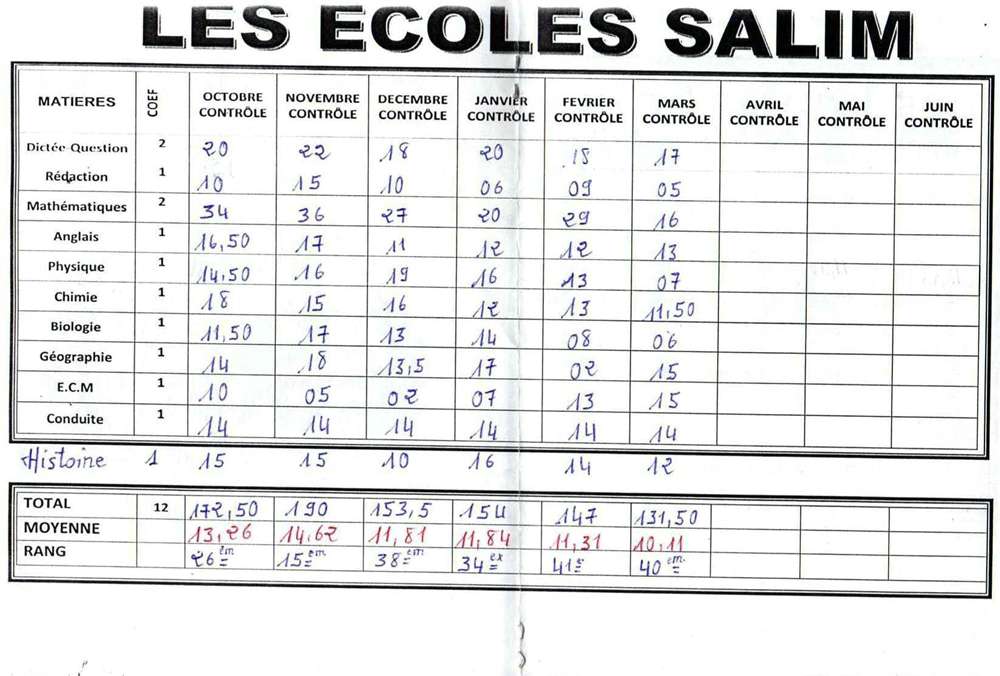 LES ECOLES SALIM
MATIERES COEF OCTOBRE CONTRÔLE NOVEMBRE CONTRÔLE DECEMBRE CONTRÔLE JANVIER CONTRÔLE FEVRIER CONTRÔLE MARS CONTRÔLE AVRIL CONTRÔLE MAI CONTRÔLE JUIN CONTRÔLE
Dictée-Question 2 20 22 18 20 17
Rédaction 1 10 15 10 06 09 05
Mathématiques 2 34 36 27 20 29 16
Anglais 1 16,50 17 11 12 12 13
Physique 1 14,50 16 19 16 13 07
Chimie 1 18 15 16 12 13 11,50
Biologie 1 11,50 17 13 14 08 06
Géographie 1 14 18 13,5 17 02 15
E.C.M 1 10 05 02 07 13 15
Conduite 1 14 14 14 14 14 14
Histoire 1 15 15 10 16 14 12
TOTAL 12 172,50 190 153,5 154 147 131,50
MOYENNE 13,26 14,62 11,81 11,84 11,31 10,11
RANG 26em 15em 38em 34ex 41e 40em